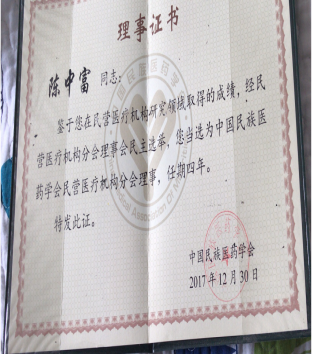 理事证书
陈中富 同志：
鉴于您在民营医疗机构研究领域取得的成绩，经民
营医疗机构分会理事会民主选举，您当选为中国民族医
药学会民营医疗机构分会理事，任期四年。
特发此证。
中国民族医药学会
2017年12月30日